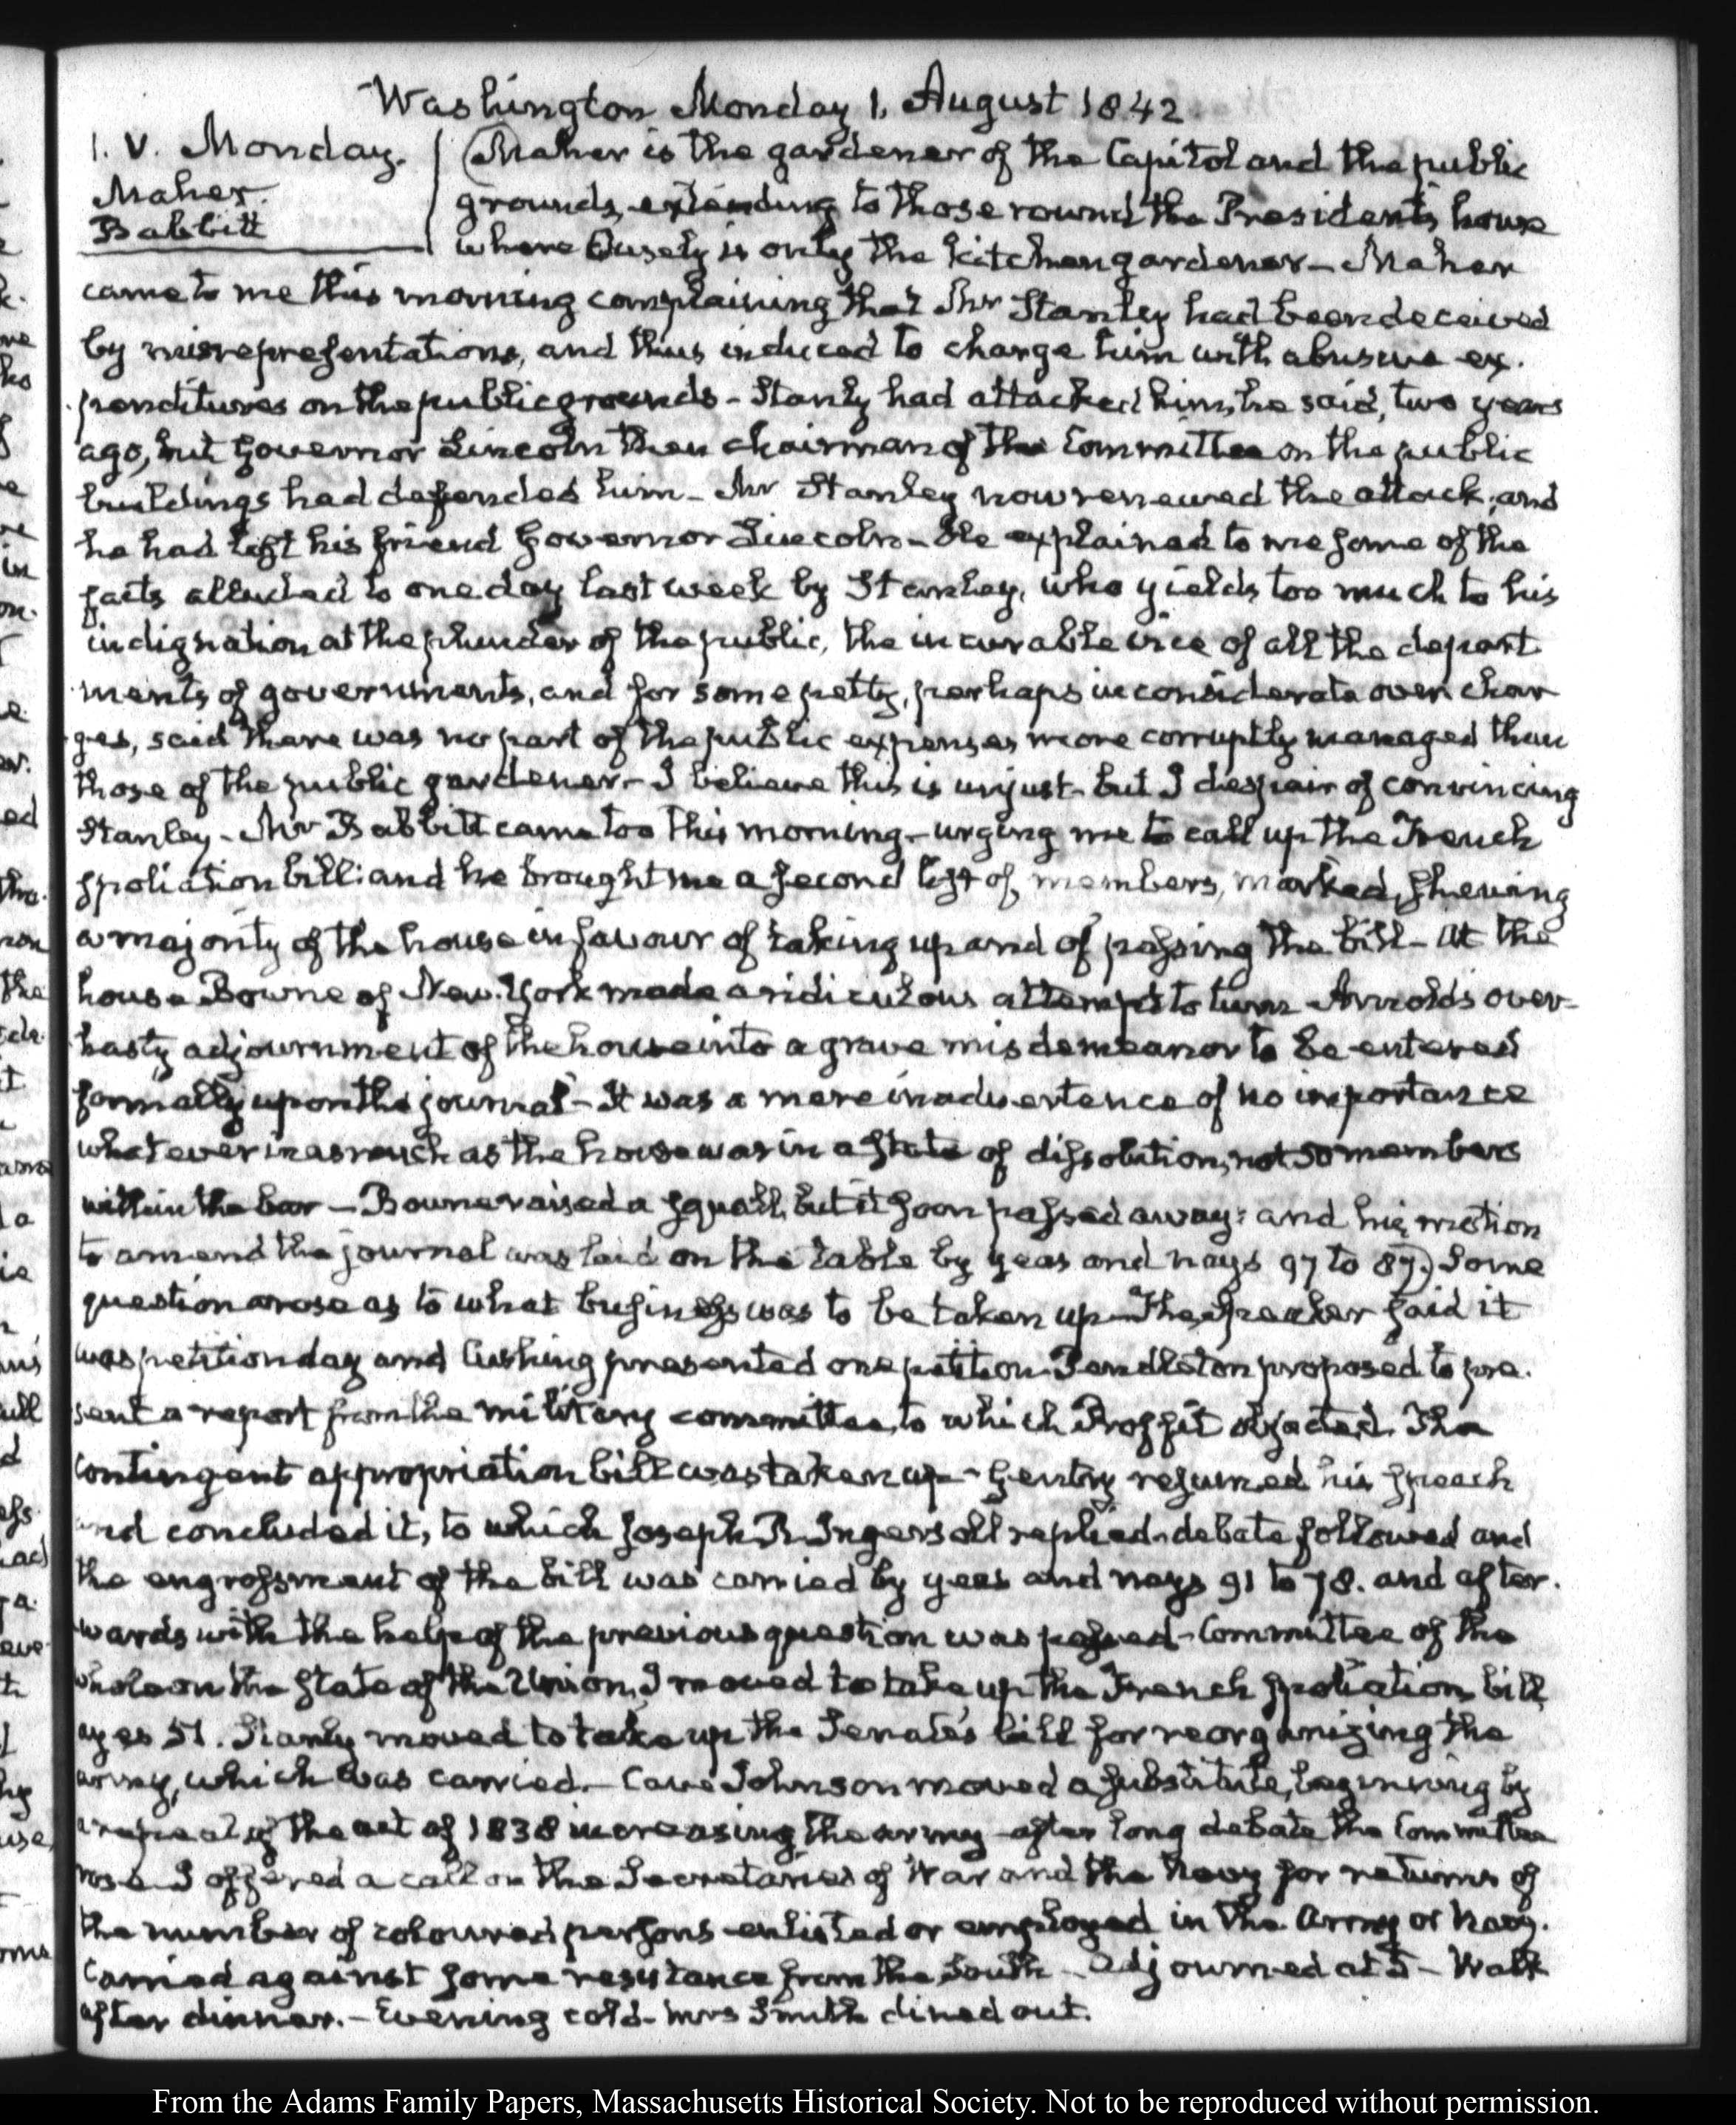 Washington Monday 1. August 1842.
1. V. Monday.
Maher.
Babbitt
Maher is the gardener of the Capitol and the public
grounds, extending to those round the Presidents house
where Ousely is only the kitchen gardener – Maher
came to me this morning complaining that Mr Stanley had been deceived
by misrepresentations, and thus induced to charge him with abusive ex-
penditures on the public grounds – Stanly had attacked him, he said, two years
ago, but Governor Lincoln then chairman of the Committee on the public
buildings had defended him – Mr Stanley now renewed the attack, and
he had lost his friend Governor Lincoln – He explained to me some of the
facts alluded to one day last week by Stanley, who yields too much to his
indignation at the plunder of the public, the incurable vice of all the depart-
ments of governments, and for some petty, perhaps inconsiderate over char
ges, said there was no part of the public expenses more corruptly managed than
those of the public gardener – I believe this is unjust – but I despair of convincing
Stanley – Mr Babbitt came too this morning – urging me to call up the French
spoliation bill: and he brought me a second list of, members, marked, shewing
a majority of the house in favour of taking up and of passing the bill – At the
house Bowne of New-York made a ridiculous attempt to turn Arnold's over-
hasty adjournment of the house into a grave misdemeanor to be entered
formally upon the journal – It was a mere inadvertence of no importance
whatever inasmuch as the house was in a state of dissolution, not 50 members
within the bar – Bowne raised a squall, but it soon passed away: and his motion
to amend the journal was laid on the table by yeas and nays 97 to 87) Some
question arose as to what business was to be taken up – The Speaker said it
was petition day and Cushing presented one petition – Pendleton proposed to pre-
sent a report from the military committee, to which Proffit objected. The
contingent appropriation bill was taken up – Gentry resumed his speech
and concluded it, to which Joseph R. Ingersoll replied – debate followed and
the engrossment of the bill was carried by yeas and nays 91 to 78. and after-
wards with the help of the previous question was passed – Committee of the
whole on the state of the Union, I moved to take up the French spoliation bill,
ayes 51. Stanly moved to take up the Senate's bill for reorganizing the
army, which was carried. – Cave Johnson moved a substitute, beginning by
a repeal of the act of 1838 increasing the army – after long debate the Committee
rose – I offered a call on the Secretaries of War and the Navy for returns of
the number of coloured persons enlisted or employed in the Army or Navy.
Carried against some resistance from the South – Adjourned at 5 – Walk
after dinner. – Evening cold – Mrs Smith dined out.
From the Adams Family Papers, Massachusetts Historical Society. Not to be reproduced without permission.